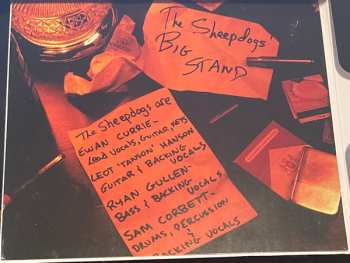 The Sheepdogs'
BIG
STAND
The Sheepdogs are
EWAN CURRIE-
Lead Vocals, Guitar, Keys
LEOT "TANSON" HANSON
GUITAR & BACKING
VOCALS
RYAN GULLEN-
BASS & BACKING VOCALS
SAM CORBETT-
DRUMS, PERCUSSION
&
BACKING VOCALS